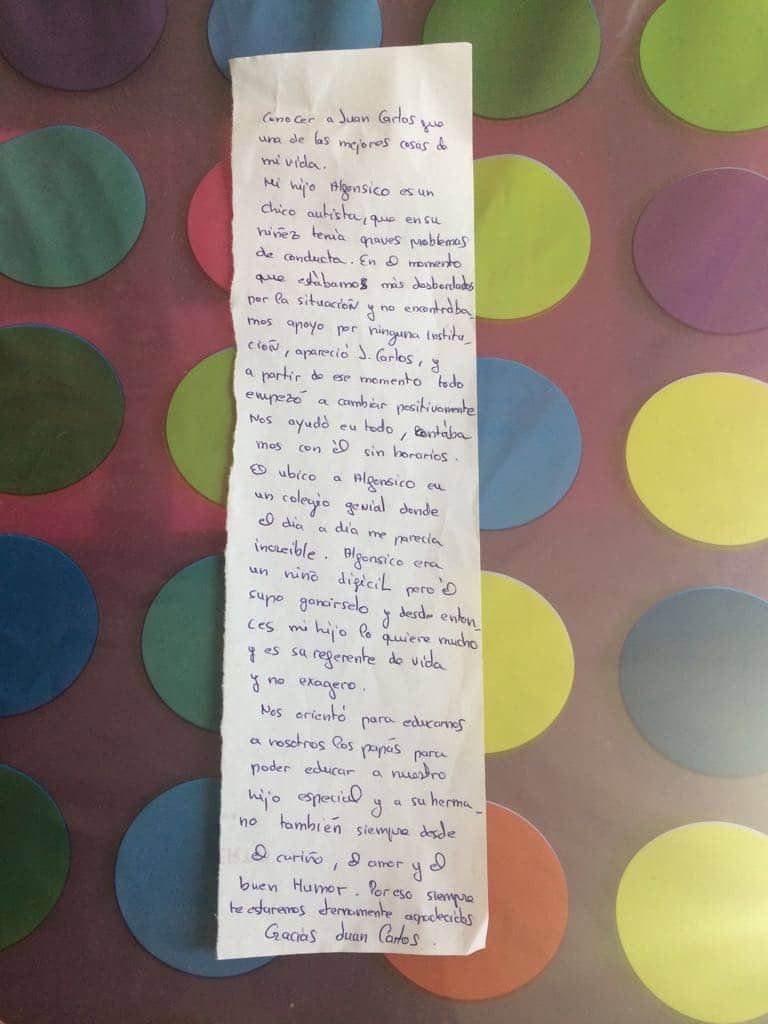 Conocer a Juan Carlos que
una de las mejores cosas de
mi vida.
Mi hijo Algonsico es un
chico autista, que en su
niñez tenia graves problemas
de conducta. En el momento
que estábamos más desbordados
por la situación y no encontrába-
mos apoyo por ninguna institu-
ción, apareció J. Carlos, y
a partir de ese momento todo
empezó a cambiar positivamente
Nos ayudó en todo, contába
mos con él sin horarios.
El ubico a Algonsico en
un colegio genial donde
el día a día me parecía
increible. Algonsico era
un niño difícil pero él
supo ganárselo y desde enton-
ces mi hijo lo quiere mucho
y es su referente de vida
y no exagero.
Nos orientó para educarnos
a nosotros los papás para
poder educar a nuestro
hijo especial y a su herma-
no también siempre desde
el cariño, el amor y el
buen Humor. Por eso siempre
te estaremos eternamente agradecidos
Gracias Juan Carlos.